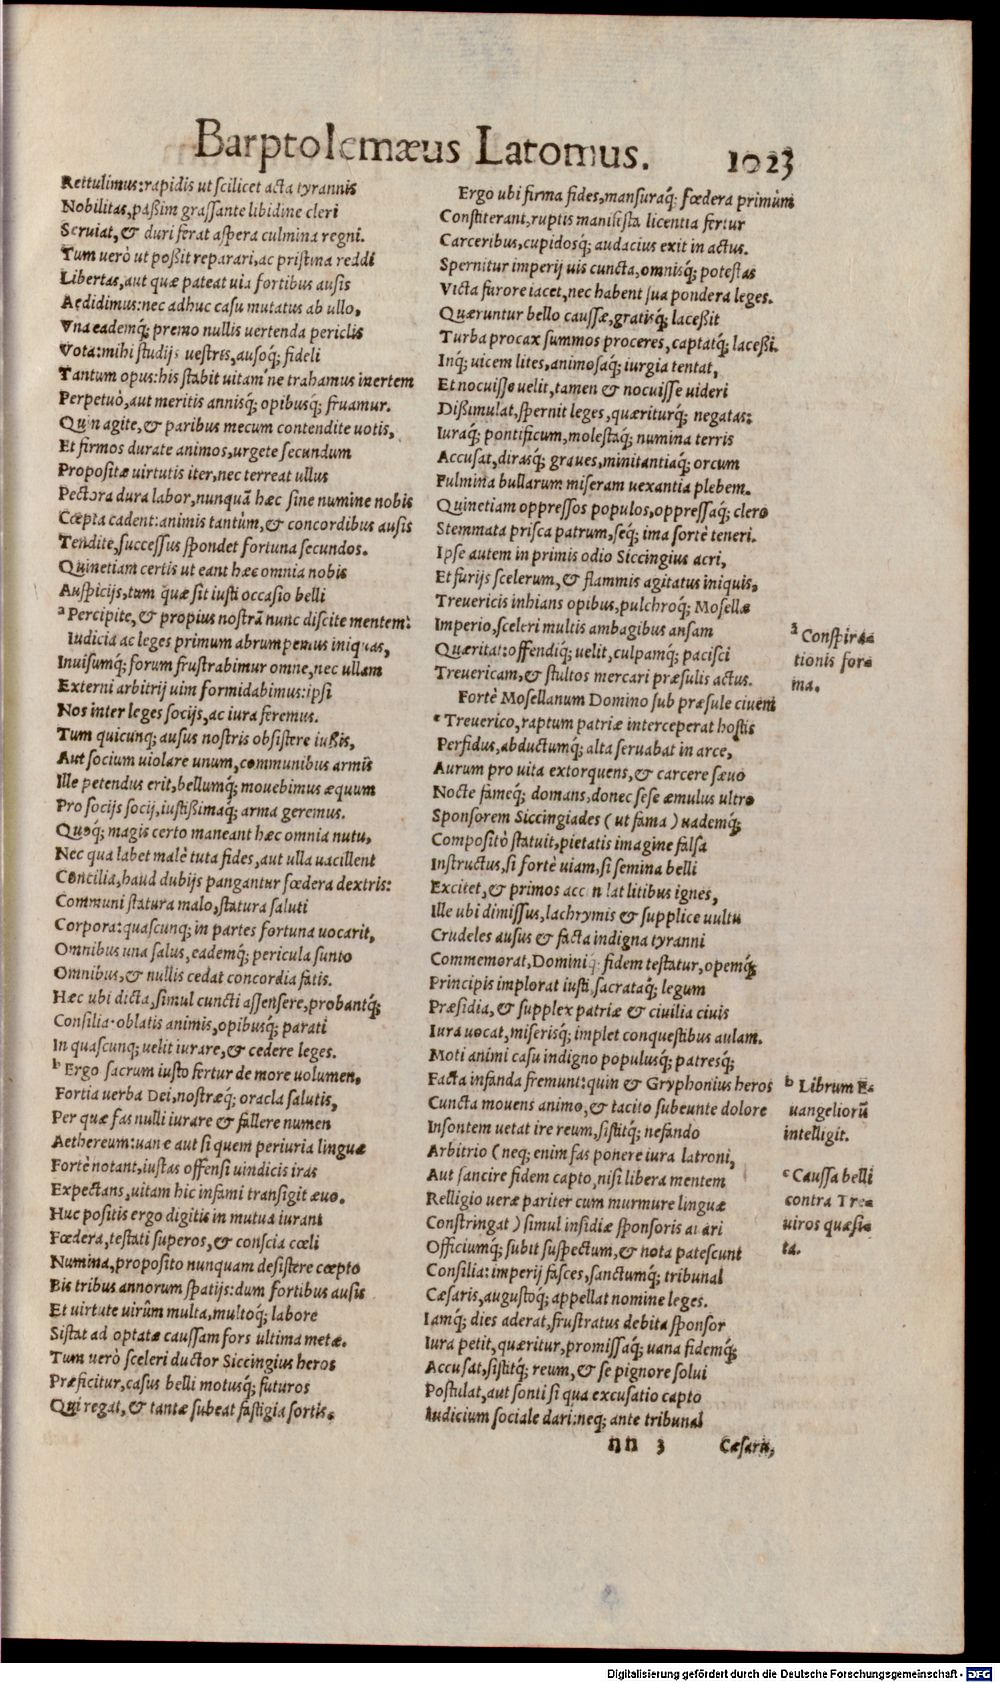 Barptolemæus Latomus. 1023
Rettulimus: rapidis ut scilicet acta tyrannis
Nobilitas, paßim grassante libidine cleri
Seruiat, & duri ferat aspera culmina regni.
Tum uerò ut poßit reparari, ac pristina reddi
Libertas, aut quæ pateat uia fortibus ausis
Aedidimus: nec adhuc casu mutatus ab ullo,
Vna eademq́; premo nullis uertenda periclis
Vota: mihi studijs uestris, ausoq́; fideli
Tantum opus: his stabit uitam ne trahamus inertem
Perpetuò, aut meritis annisq́; opibusq́; fruamur.
Quin agite, & paribus mecum contendite uotis,
Et firmos durate animos, urgete secundum
Propositæ uirtutis iter, nec terreat ullus
Pectora dura labor, nunquã hæc sine numine nobis
Cœpta cadent: animis tantùm, & concordibus ausis
Tendite, successus spondet fortuna secundos.
Quinetiam certis ut eant hæc omnia nobis
Auspicijs, tum quæ sit iusti occasio belli
a Percipite, & propius nostrã nunc discite mentem:
Iudicia ac leges primum abrumpemus iniquas,
Inuisumq́; forum frustrabimur omne, nec ullam
Externi arbitrij uim formidabimus: ipsi
Nos inter leges socijs, ac iura feremus.
Tum quicunq; ausus nostris obsistere iußis,
Aut socium uiolare unum, communibus armis
Ille petendus erit, bellumq́; mouebimus æquum
Pro socijs socij, iustißimaq́; arma geremus.
Quoq́; magis certo maneant hæc omnia nutu,
Nec qua labet malè tuta fides, aut ulla uacillent
Concilia, haud dubijs pangantur fœdera dextris:
Communi statura malo, statura saluti
Corpora: quascunq; in partes fortuna uocarit,
Omnibus una salus, eademq́; pericula sunto
Omnibus, & nullis cedat concordia fatis.
Hæc ubi dicta, simul cuncti assensere, probantq́;
Consilia oblatis animis, opibusq́; parati
In quascunq; uelit iurare, & cedere leges.
b Ergo sacrum iusto fertur de more uolumen,
Fortia uerba Dei, nostræq́; oracla salutis,
Per quæ fas nulli iurare & fallere numen
Aethereum: uanæ aut si quem periuria linguæ
Fortè notant, iustas offensi uindicis iras
Expectans, uitam hic infami transigit æuo.
Huc positis ergo digitis in mutua iurant
Fœdera, testati superos, & conscia cœli
Numina, proposito nunquam desistere cœpto
Bis tribus annorum spatijs: dum fortibus ausis
Et uirtute uirûm multa, multoq́; labore
Sistat ad optatæ caussam fors ultima metæ.
Tum uerò sceleri ductor Siccingius heros
Præficitur, casus belli motusq́; futuros
Qui regat, & tantæ subeat fastigia sortis.
Ergo ubi firma fides, mansuraq́; fœdera primùm
Constiterant, ruptis manifesta licentia fertur
Carceribus, cupidosq́; audacius exit in actus.
Spernitur imperij uis cuncta, omnisq́; potestas
Victa furore iacet, nec habent sua pondera leges.
Quæruntur bello caussæ, gratisq́; laceßit
Turba procax summos proceres, captatq́; laceßi.
Inq́; uicem lites, animosaq́; iurgia tentat,
Et nocuisse uelit, tamen & nocuisse uideri
Dißimulat, spernit leges, quæriturq́; negatas:
Iuraq́; pontificum, molestaq́; numina terris
Accusat, dirasq́; graues, minitantiaq́; orcum
Fulmina bullarum miseram uexantia plebem.
Quinetiam oppressos populos, oppressaq́; clero
Stemmata prisca patrum, seq́; ima sortè teneri.
Ipse autem in primis odio Siccingius acri,
Et furijs scelerum, & flammis agitatus iniquis,
Treuericis inhians opibus, pulchroq́; Mosellæ
Imperio, sceleri multis ambagibus ansam
Quæritat: offendiq́; uelit, culpamq́; pacisci
Treuericam, & stultos mercari præsulis actus.
Fortè Mosellanum Domino sub præsule ciuem
c Treuerico, raptum patriæ interceperat hostis
Perfidus, abductumq́; alta seruabat in arce,
Aurum pro uita extorquens, & carcere sæuo
Nocte fameq́; domans, donec sese æmulus ultro
Sponsorem Siccingiades (ut fama) uademq́;
Compositò statuit, pietatis imagine falsa
Instructus, si fortè uiam, si semina belli
Excitet, & primos litibus ignes,
Ille ubi dimissus, lachrymis & supplice uultu
Crudeles ausus & facta indigna tyranni
Commemorat, Dominiq́; fidem testatur, opemq́;
Principis implorat iusti, sacrataq́; legum
Præsidia, & supplex patriæ & ciuilia ciuis
Iura uocat, miserisq́; implet conquestibus aulam.
Moti animi casu indigno populusq́; patresq́;
Facta infanda fremunt: quin & Gryphonius heros
Cuncta mouens animo, & tacito subeunte dolore
Insontem uetat ire reum, sistitq́; nefando
Arbitrio (neq; enim fas ponere iura latroni,
Aut sancire fidem capto, nisi libera mentem
Relligio ueræ pariter cum murmure linguæ
Constringat) simul insidiæ sponsoris auari
Officiumq́; subit suspectum, & nota patescunt
Consilia: imperij fasces, sanctumq́; tribunal
Cæsaris, augustoq́; appellat nomine leges.
Iamq́; dies aderat, frustratus debita sponsor
Iura petit, quæritur, promissaq́; uana fidemq́;
Accusat, sistitq́; reum, & se pignore solui
Postulat, aut sonti si qua excusatio capto
Iudicium sociale dari: neq; ante tribunal
nn 3 Cæsaris,
a Conspira-
tionis for-
ma.
b Librum E-
uangeliorũ
intelligit.
c Caussa belli
contra Tre-
uiros quæsi-
ta.
Digitalisierung gefördert durch die Deutsche Forschungsgemeinschaft - DFG